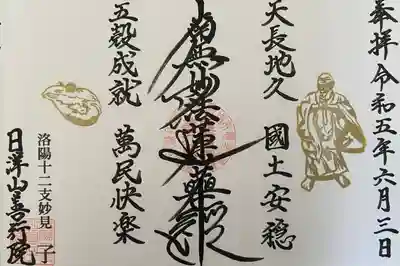 奉拝令和五年六月三日
天長地久 國土安穏
南無妙法蓮華経
五穀成就 萬民快楽
洛陽十二支妙見 子
日洋山善行院